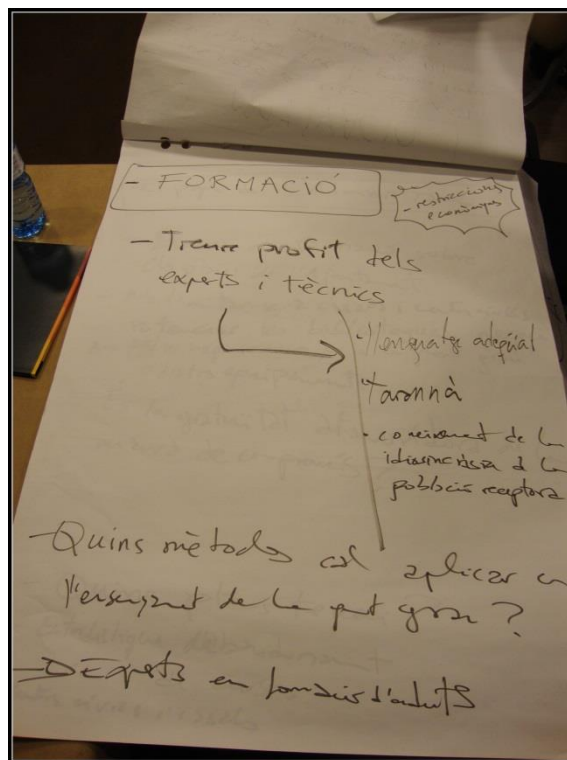 - FORMACIÓ
- restriccions
econòmiques
- Treure profit dels
experts i tècnics
· llenguatge adequat
· tarannà
· coneixement de la
idiosincràsia d la
població receptora
- Quins mètodes cal aplicar en
l'ensenyament de la gent gran?
→ Experts en formació d'adults